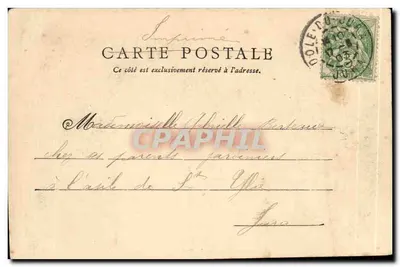 Imprimé
CARTE POSTALE
Ce côté est exclusivement réservé à l'adresse.
DOLE-DU-JURA
Mademoiselle
chez ses parents
à l'asile de St Ylie
Jura